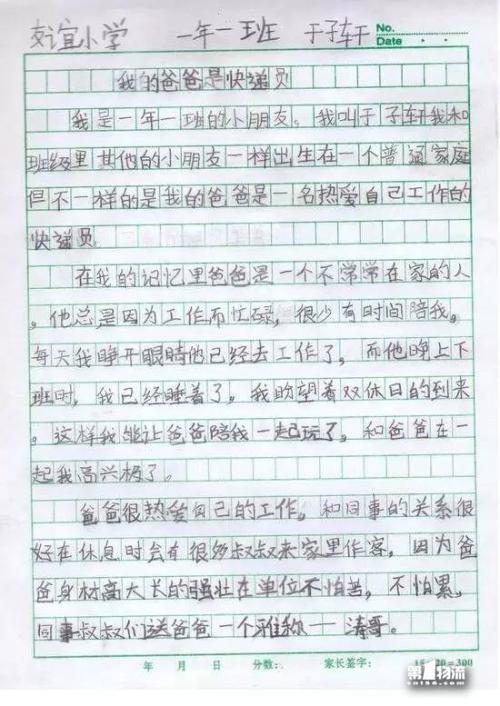 友谊小学 一年一班 于子轩 No.
Date
我的爸爸是快递员
我是一年一班的小朋友。我叫于子轩我和
班级里其他的小朋友一样出生在一个普通家庭
但不一样的是我的爸爸是一名热爱自己工作的
快递员
在我的记忆里爸爸是一个不常常在家的人
。他总是因为工作而忙碌,很少有时间陪我。
每天我睁开眼睛他已经去工作了,而他晚上下
班时,我已经睡着了。我盼望着双休日的到来
。这样我能让爸爸陪我一起玩了。和爸爸在一
起我高兴极了。
爸爸很热爱自己的工作。和同事的关系很
好在休息时会有很多叔叔来家里作客,因为爸
爸身材高大长的强壮在单位不怕苦,不怕累,
同事叔叔们送爸爸一个雅称——涛哥。
年 月 日 分数: 家长签字: 15×20=300
第1物流